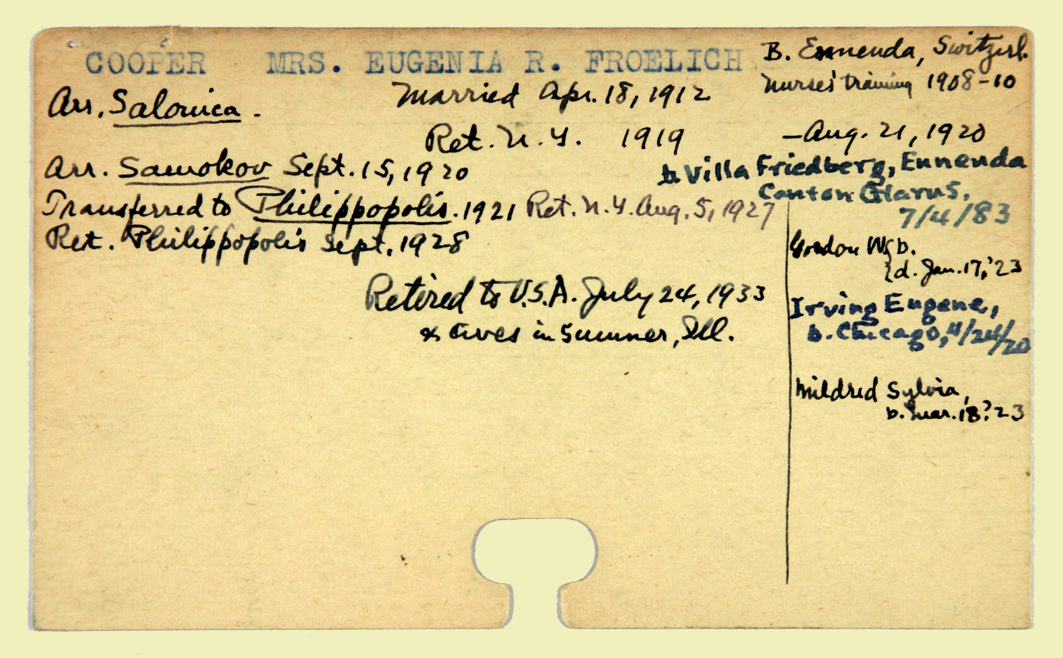 COOPER MRS. EUGENIA R. FROELICH
B. Ennenda, Switzerl.
Nurses' training 1908-10
Arr. Salonica.
Married Apr. 18, 1912
Ret. N. Y. 1919
-Aug. 21, 1920
Arr. Samokov Sept. 15, 1920
b Villa Friedberg, Ennenda
Canton Glarus,
7/4/83
Transferred to Philippopolis. 1921 Ret. N. Y. Aug. 5, 1927
Ret. Philippopolis Sept. 1928
Gordon W. b.
d. Jan. 17, '23
Retired to U.S.A. July 24, 1933
& lives in Sumner, Ill.
Irving Eugene,
b. Chicago, 4/24/20
Mildred Sylvia,
b. Mar. 18? 23